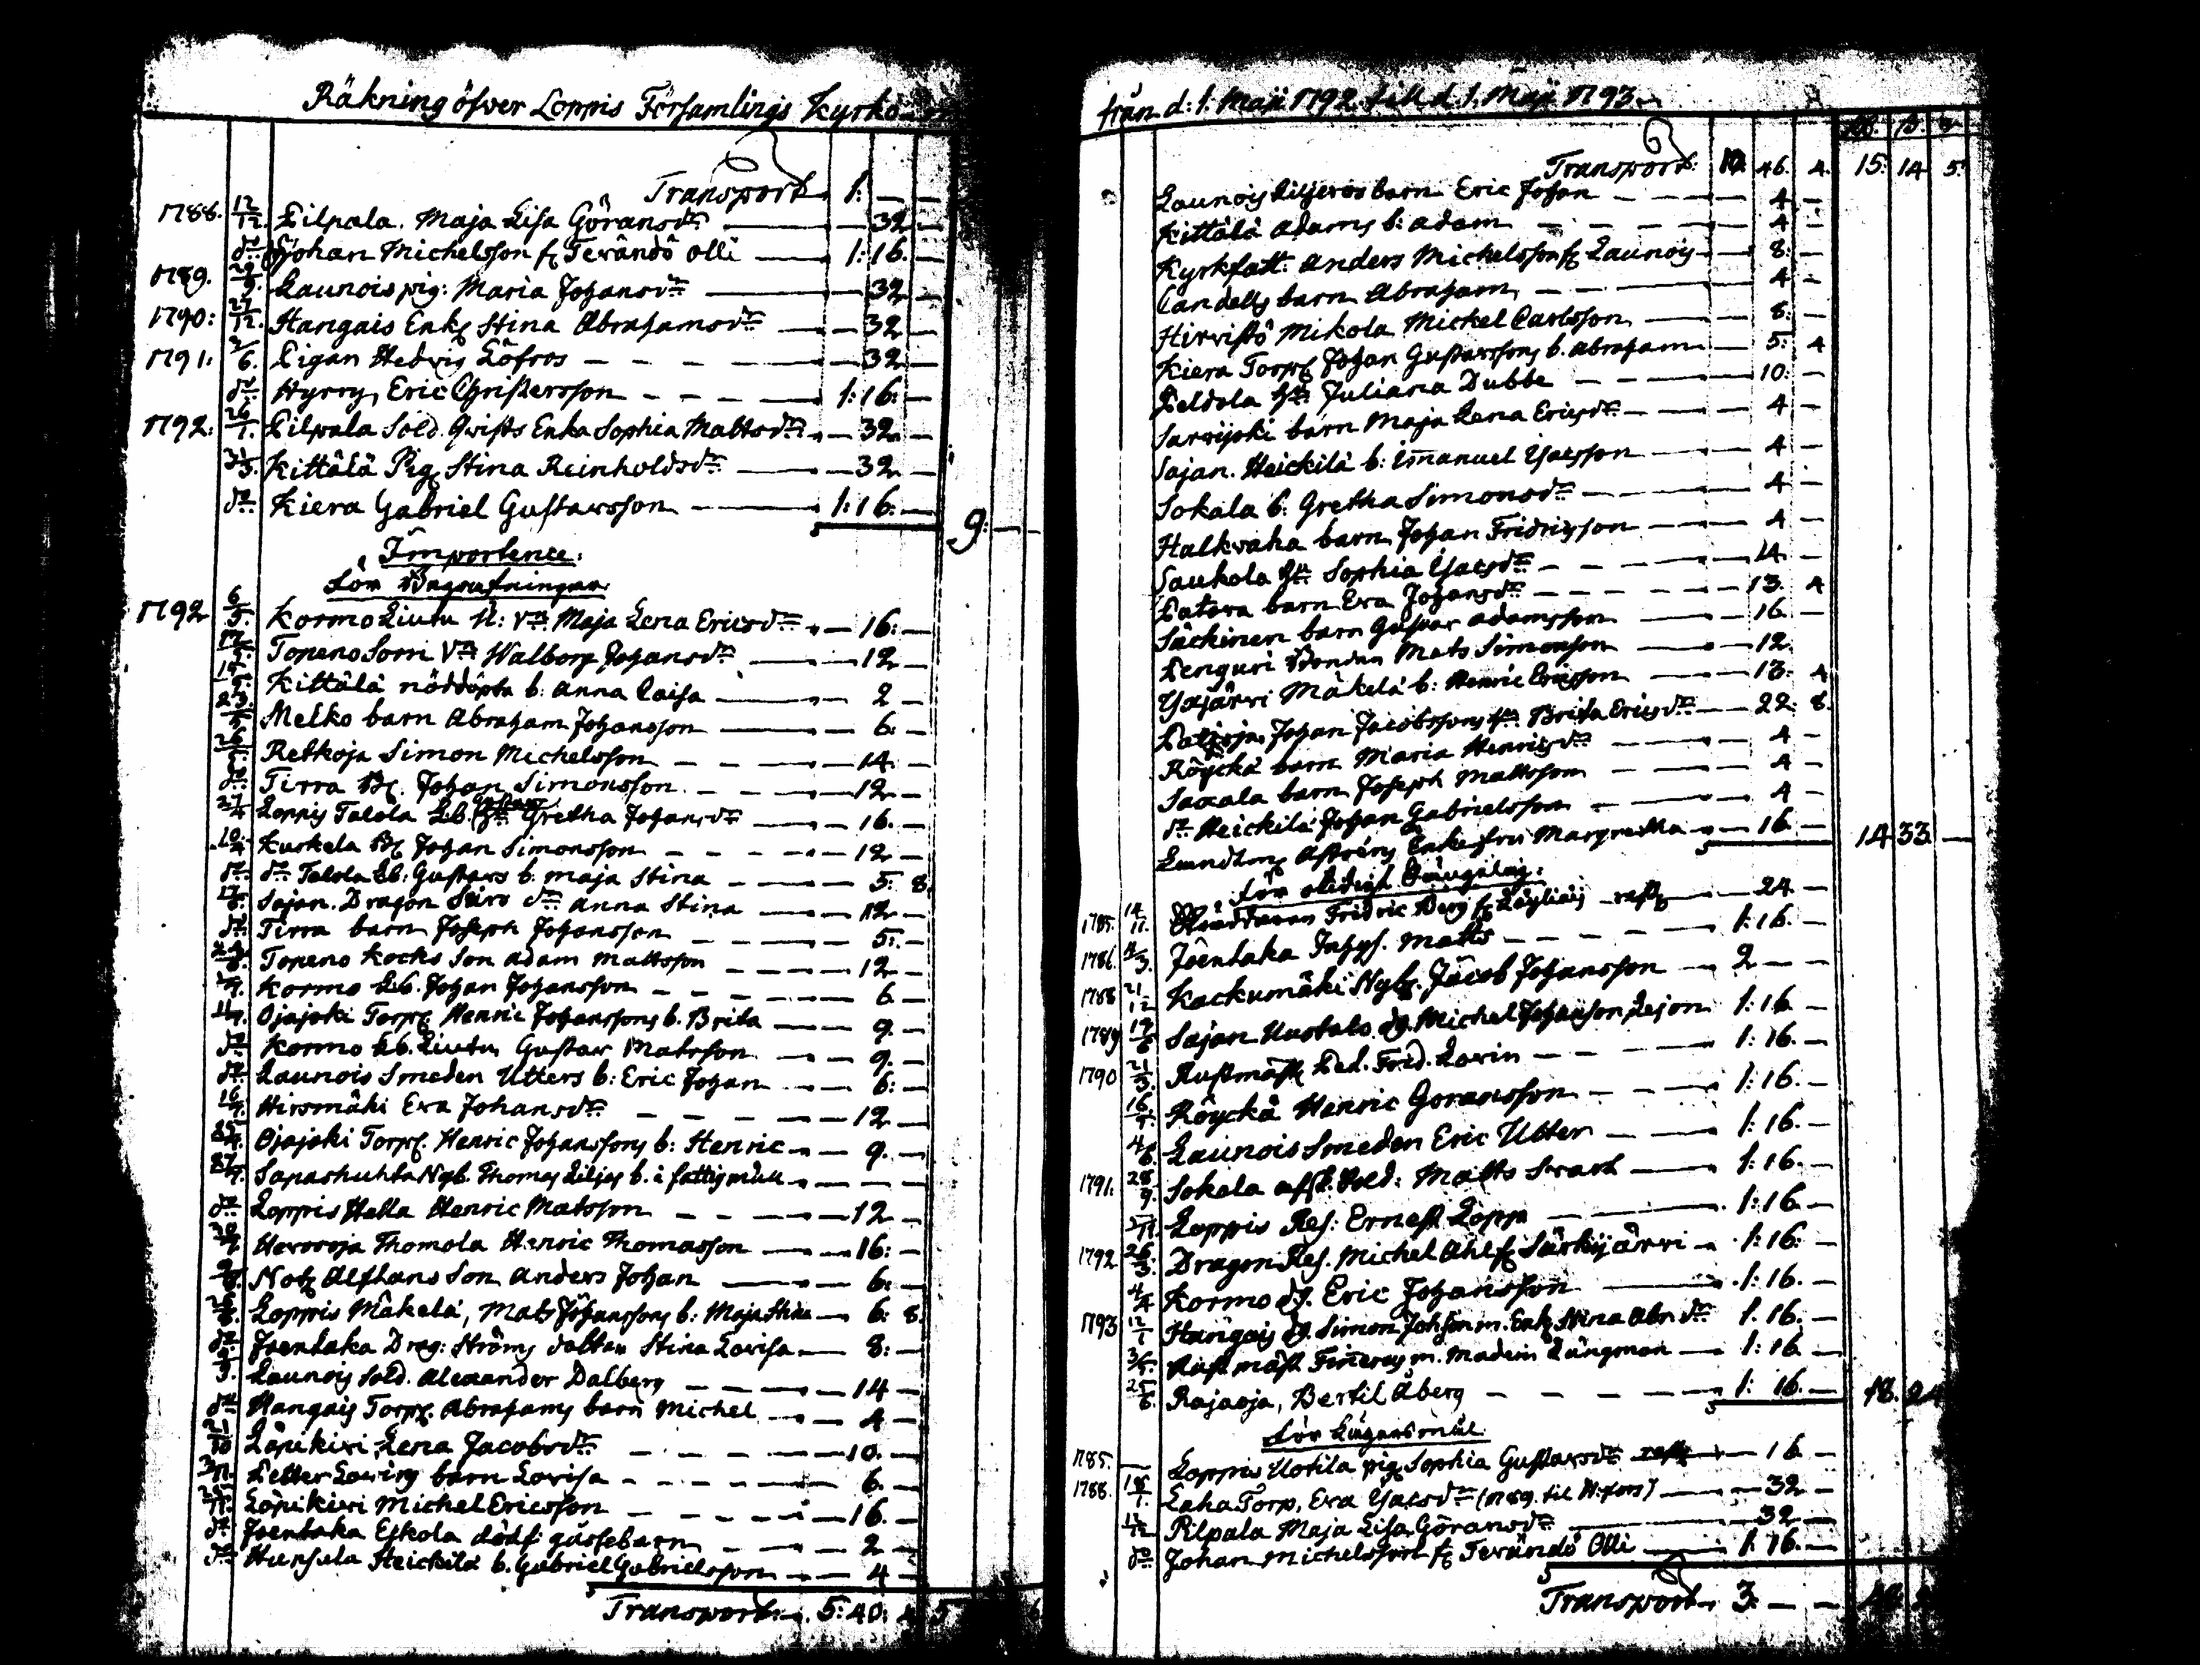 Räkning öfver Loppis Församlings Kyrko
Transport 1: — —
1788. 12/12 Pilpala. Maja Lisa Göransdr — 32 —
do Johan Michelsson fr Terändö Olli — 1: 16. —
1789. 29/9. Launois pig: Maria Johansdr — 32 —
1790: 27/12. Hangais Enk. Stina Abrahamsdr — 32 —
1791: 2/6. Pigan Hedvig Löfros — 32 —
do Hyrry, Eric Christersson — 1: 16: —
1792: Pilpala Sold. Qvists Enka Sophia Mattsdr — 32 —
Kittälä Pig. Stina Reinholdsdr — 32 —
do Kiera Gabriel Gustavsson — 1: 16: —
9: — —
Importence:
för
1792 6/5. Kormo Liutu N: Maja Lena Ericsdr — 16: —
Topeno Sorri Walborg Johansdr — 12 —
Kittälä nöddöpta b: Anna Caisa — 2 —
Melko barn Abraham Johansson — 6: —
Retkoja Simon Michelsson — 14: —
do Tirra Johan Simonsson — 12 —
Loppis Talola Gretha Johansdr — 16. —
Kuskela Johan Simonsson — 12 —
do do Talola Gustavs b: Maja Stina — 5: 8
Sajan. Dragon Anna Stina — 12 —
do Tirra barn Joseph Johansson — 5: —
Topeno Kocks Son Adam Mattsson — 12 —
Kormo Johan Johansson — 6 —
Ojajoki Torp. Henric Johanssons b. Brita — 9. —
do Kormo Liutu Gustav Matsson — 9. —
do Launois Smeden Utters b: Eric Johan — 6: —
Hirsmäki Eva Johansdr — 12 —
Ojajoki Torp. Henric Johanssons b: Henric — 9. —
Sapashuhta Nyb. Thomas Liljas b. i fattigmull — — —
do Loppis Hella Henric Matsson — 12 —
Thomola Henric Thomasson — 16: —
Not. Alfthans Son Anders Johan — 6: —
Loppis Mäkelä, Mats Johanssons b: Maja Stina — 6: 8.
do Joentaka Drag: Ströms dotter Stina Lovisa — 8: —
Launois Sold. Alexander Dalberg — 14 —
do Hangais Torp. Abrahams barn Michel — 4 —
Läpikivi, Lena Jacobsdr — 10. —
Petter barn Lovisa — 6. —
Läpikivi Michel Ericsson — 16. —
do Joentaka Eskola dödf. gossebarn — 2 —
do Hunsala Heickilä b. Gabriel Gabrielsson — 4 —
Transport: 5: 40: 4
från d: 1. Maji 1792 till d. 1. Maji 1793.
Transport: 10. 46. 4. 15: 14 5:
Launois Liljeros barn Eric Johan — 4 —
Kittälä Adams b: Adam — 4 —
Kyrkfatt: Anders Michelsson fr Launois — 8: —
barn Abraham — 4 —
Hirvistö Mikola Michel Carlsson — 8: —
Kiera Torp. Johan Gustavssons b. Abraham — 5: 4
Peldola Juliana Dubbe — 10: —
Sarvijoki barn Maja Lena Ericsdr — 4 —
Sajan. Heickilä b: Imanuel — 4 —
Sokala b: Gretha Simonsdr — 4 —
Halkvaha barn Johan Fridricsson — 4 —
Saukola Sophia — 14 —
Latova barn Eva Johansdr — 13. 4
Säckinen barn Gustav Adamsson — 16 —
Penguri Bonden Mats Simonsson — 12 —
Yajärvi Mäkelä b: Henric Ericsson — 13: 4
Johan Jacobssons Brita Ericsdr — 22: 8.
Röyckä barn Maria Henricsdr — 4 —
Saxala barn Joseph Mattsson — 4 —
do Heickilä Johan Gabrielsson — 4 —
Enkefru Margretha — 16 — 14 33 —
för
1785. 14/11. Fridric Berg fr — rest — 24 —
1786. Joentaka Matts — 1: 16. —
1788 21/12 Kackumäki Nyb. Jacob Johansson — 2 — —
1789 Sajan Uustalo dg. Michel Johansson Lejon 1: 16 —
1790 21/3. Rustmäst. Ped. Frid. Lorin — 1: 16. —
Röyckä Henric Göransson — 1: 16. —
Launois Smeden Eric Utter — 1: 16. —
1791. 28/9. Sokala afsk. Sold: Matts Svart — 1: 16. —
Loppis Res: Ernest Lopp — 1: 16 —
1792 Dragon Res. Michel Ahl fr Särkijärvi — 1: 16: —
Kormo dg. Eric Johansson — 1: 16. —
1793 12/1 Hangais dg. Simon Johsson m. Enk. Stina Abr.dr 1. 16. —
Rustmäst. m. Madem Längman — 1: 16 —
Rajaoja, Bertil Åberg — 1: 16. — 18. 24
för Lägersmål.
1785. — Loppis Uotila pig. Sophia Gustavsdr rest — 16 —
1788. Laha Torp, Eva (1789. til H:fors) — 32 —
Pilpala Maja Lisa Göransdr — 32 —
do Johan Michelsson fr Terändö Olli — 1: 16. —
Transport 3: — —